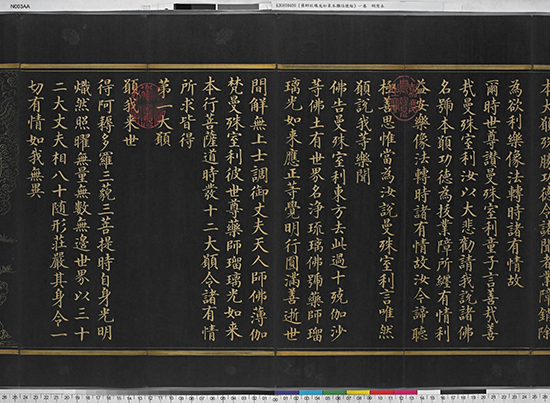 N003AA
本大願殊勝功德令諸聞者業障銷除
為欲利樂像法轉時諸有情故
爾時世尊讚曼殊室利童子言善哉善
哉曼殊室利汝以大悲勸請我說諸佛
名號本願功德為拔業障所纏有情利
益安樂像法轉時諸有情故汝今諦聽
極善思惟當為汝說曼殊室利言唯然
願說我等樂聞
佛告曼殊室利東方去此過十殑伽沙
等佛土有世界名淨琉璃佛號藥師瑠
璃光如來應正等覺明行圓滿善逝世
間解無上士調御丈夫天人師佛薄伽
梵曼殊室利彼世尊藥師瑠璃光如來
本行菩薩道時發十二大願令諸有情
所求皆得
第一大願
願我來世
得阿耨多羅三藐三菩提時自身光明
熾然照曜無量無數無邊世界以三十
二大丈夫相八十隨形莊嚴其身令一
切有情如我無異